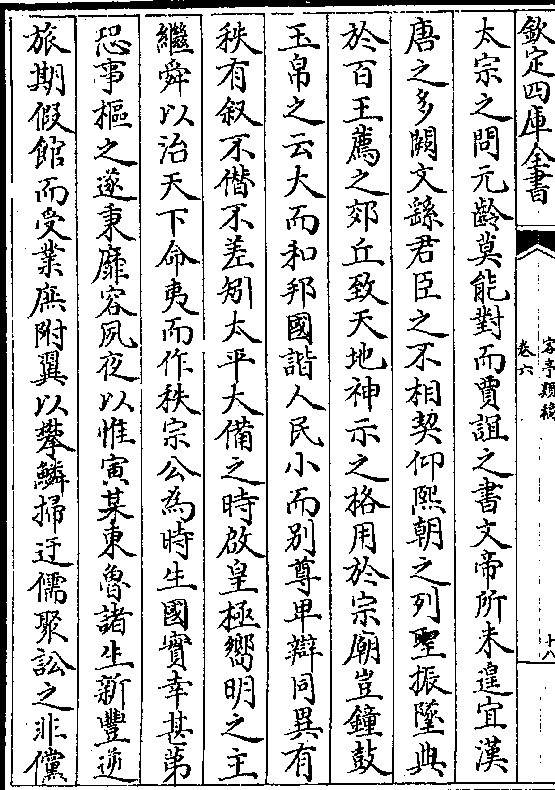 欽定四庫全書
客亭類稿
卷六
十八
太宗之問元齡莫能對而賈誼之書文帝所未遑宜漢
唐之多闕文繇君臣之不相契仰熙朝之列聖振墜典
於百王薦之郊丘致天地神示之格用於宗廟豈鐘鼓
玉帛之云大而和邦國諧人民小而别尊卑辯同異有
秩有叙不僭不差矧太平大備之時啟皇極嚮明之主
繼舜以治天下命夷而作秩宗公為時生國實幸甚第
恐事樞之遂秉靡容夙夜以惟寅某東魯諸生新豐逆
旅期假館而受業庶附翼以攀鱗掃迂儒聚訟之非儻